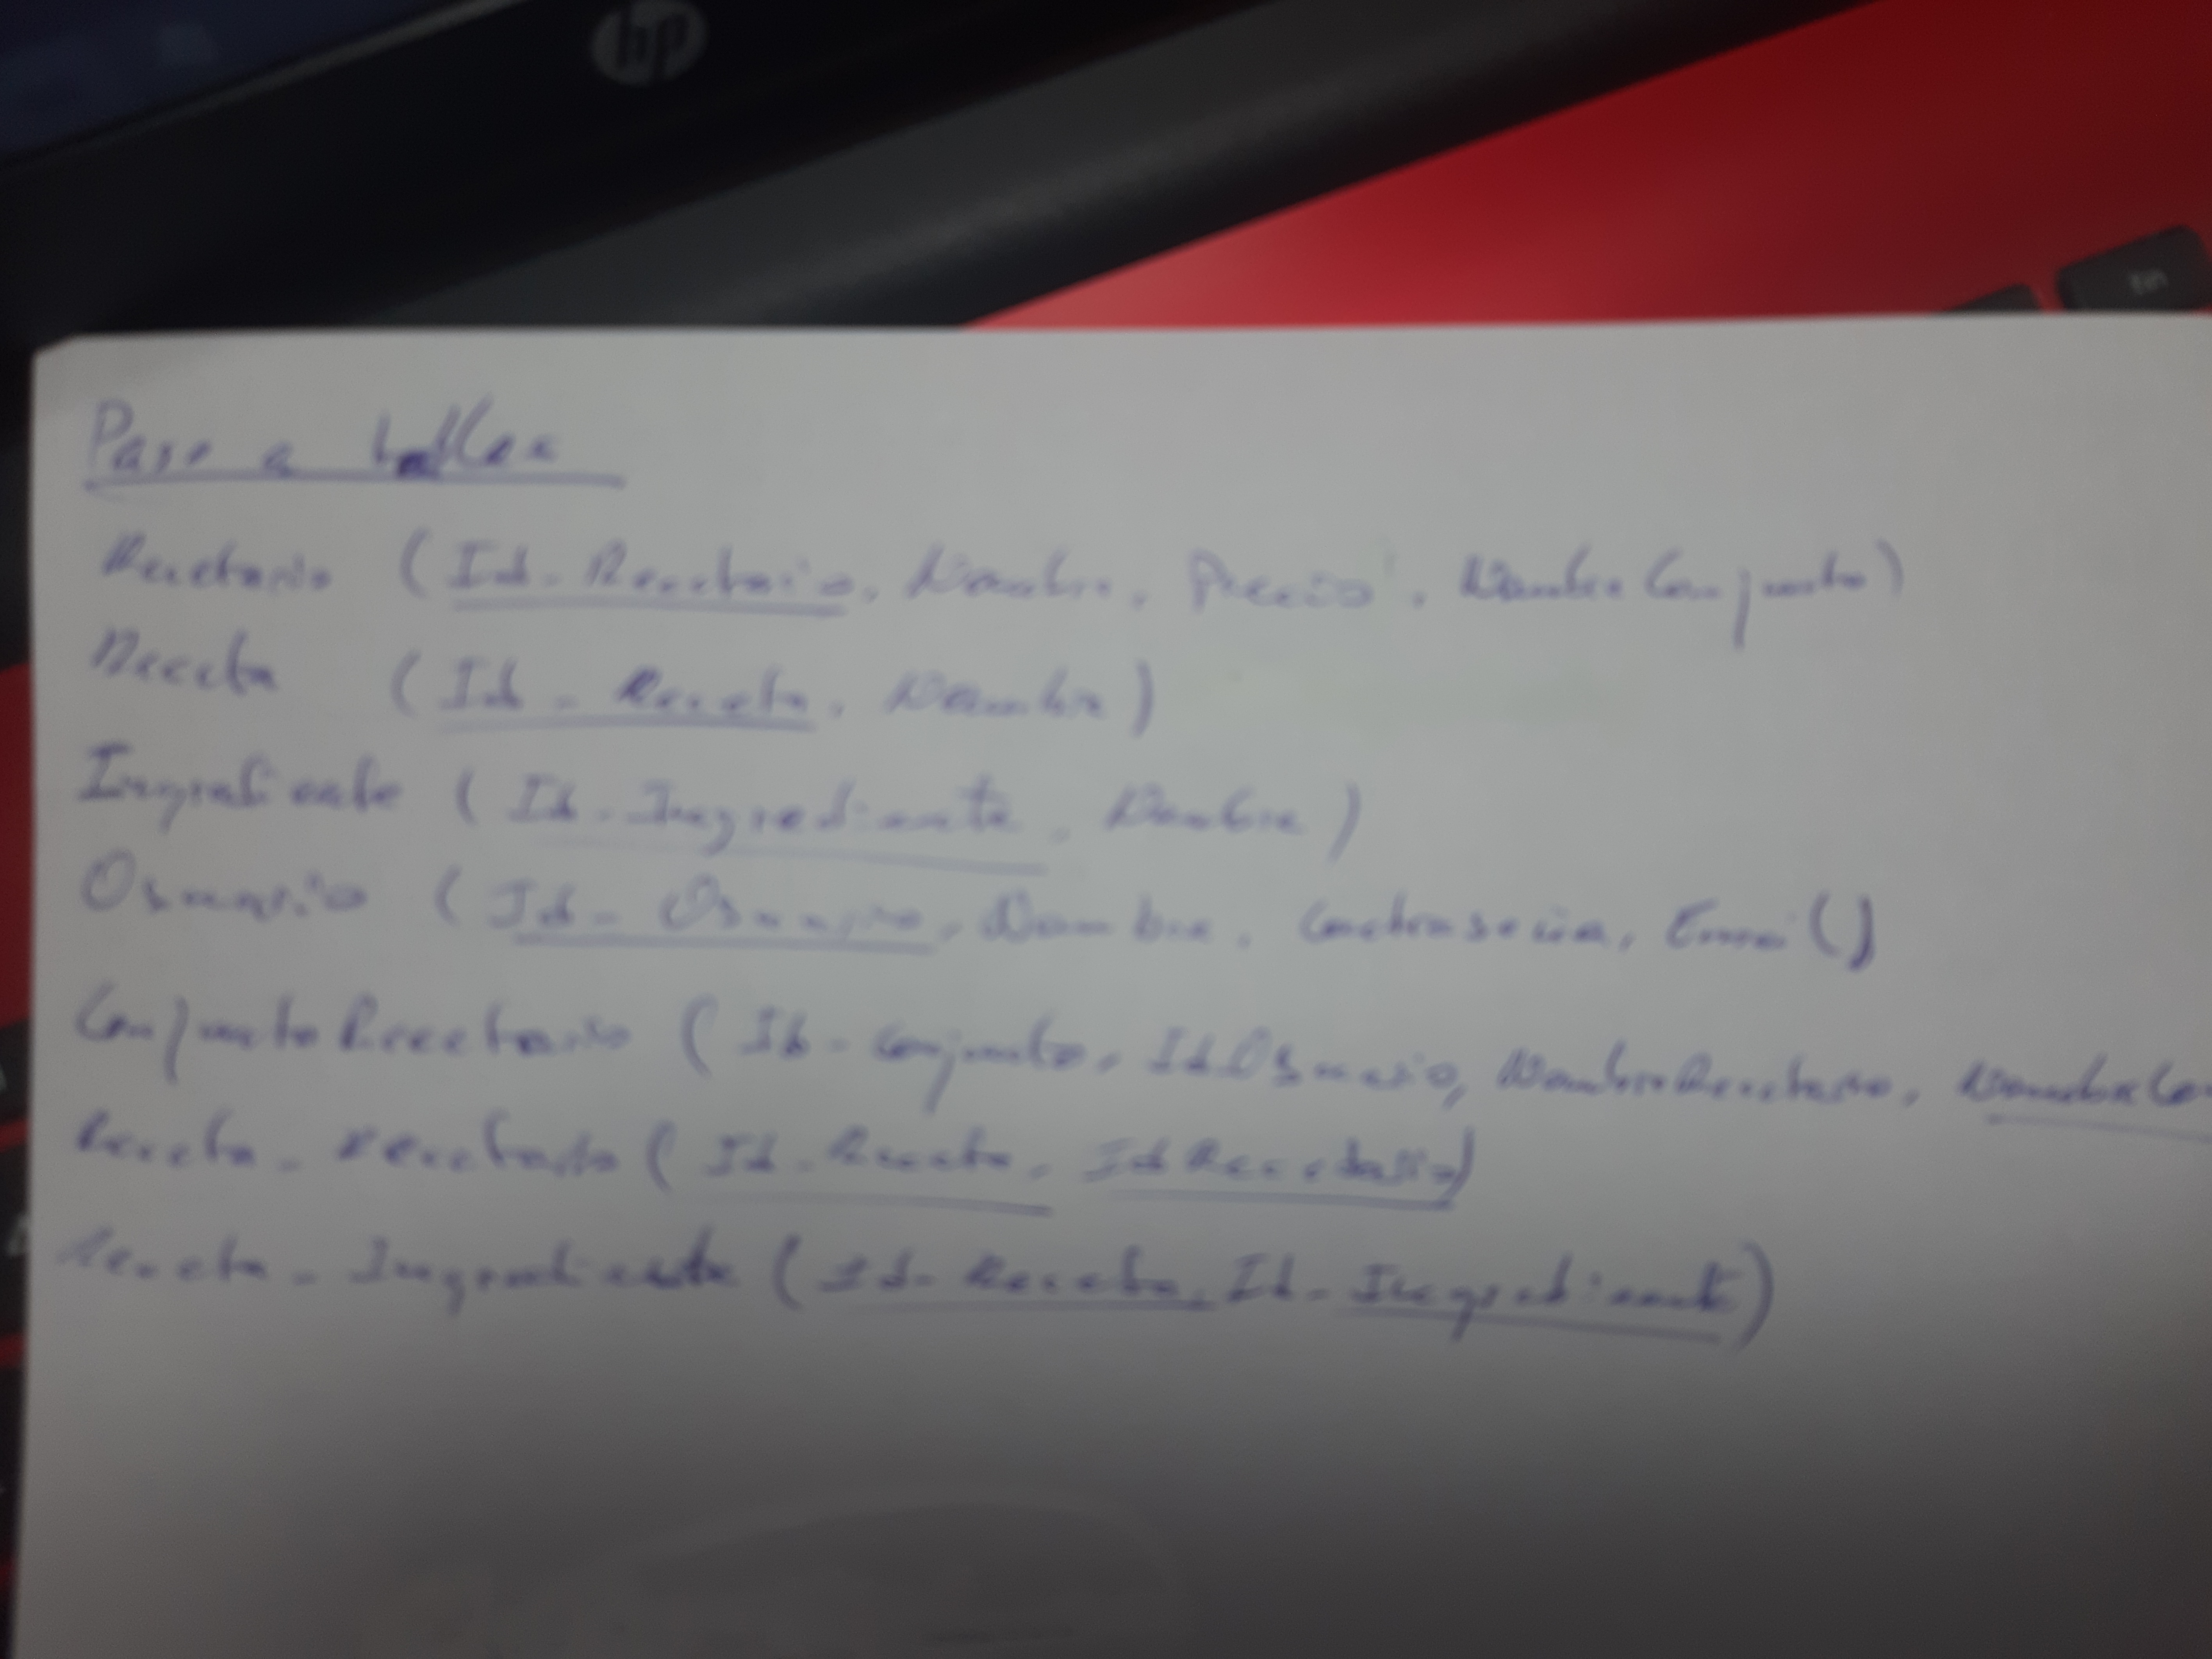 hp
fin
Paso a tablas
Recetario (Id-Recetario, Nombre, Precio, NombreConjunto)
Receta (Id-Receta, Nombre)
Ingrediente (Id-Ingrediente, Nombre)
Usuario (Id-Usuario, Nombre, Contraseña, Email)
ConjuntoRecetario (Id-conjunto, IdUsuario, NombreRecetario, NombreCon
Receta-recetario (Id-Receta, IdRecetario)
Receta-Ingrediente (Id-Receta, Id-Ingrediente)